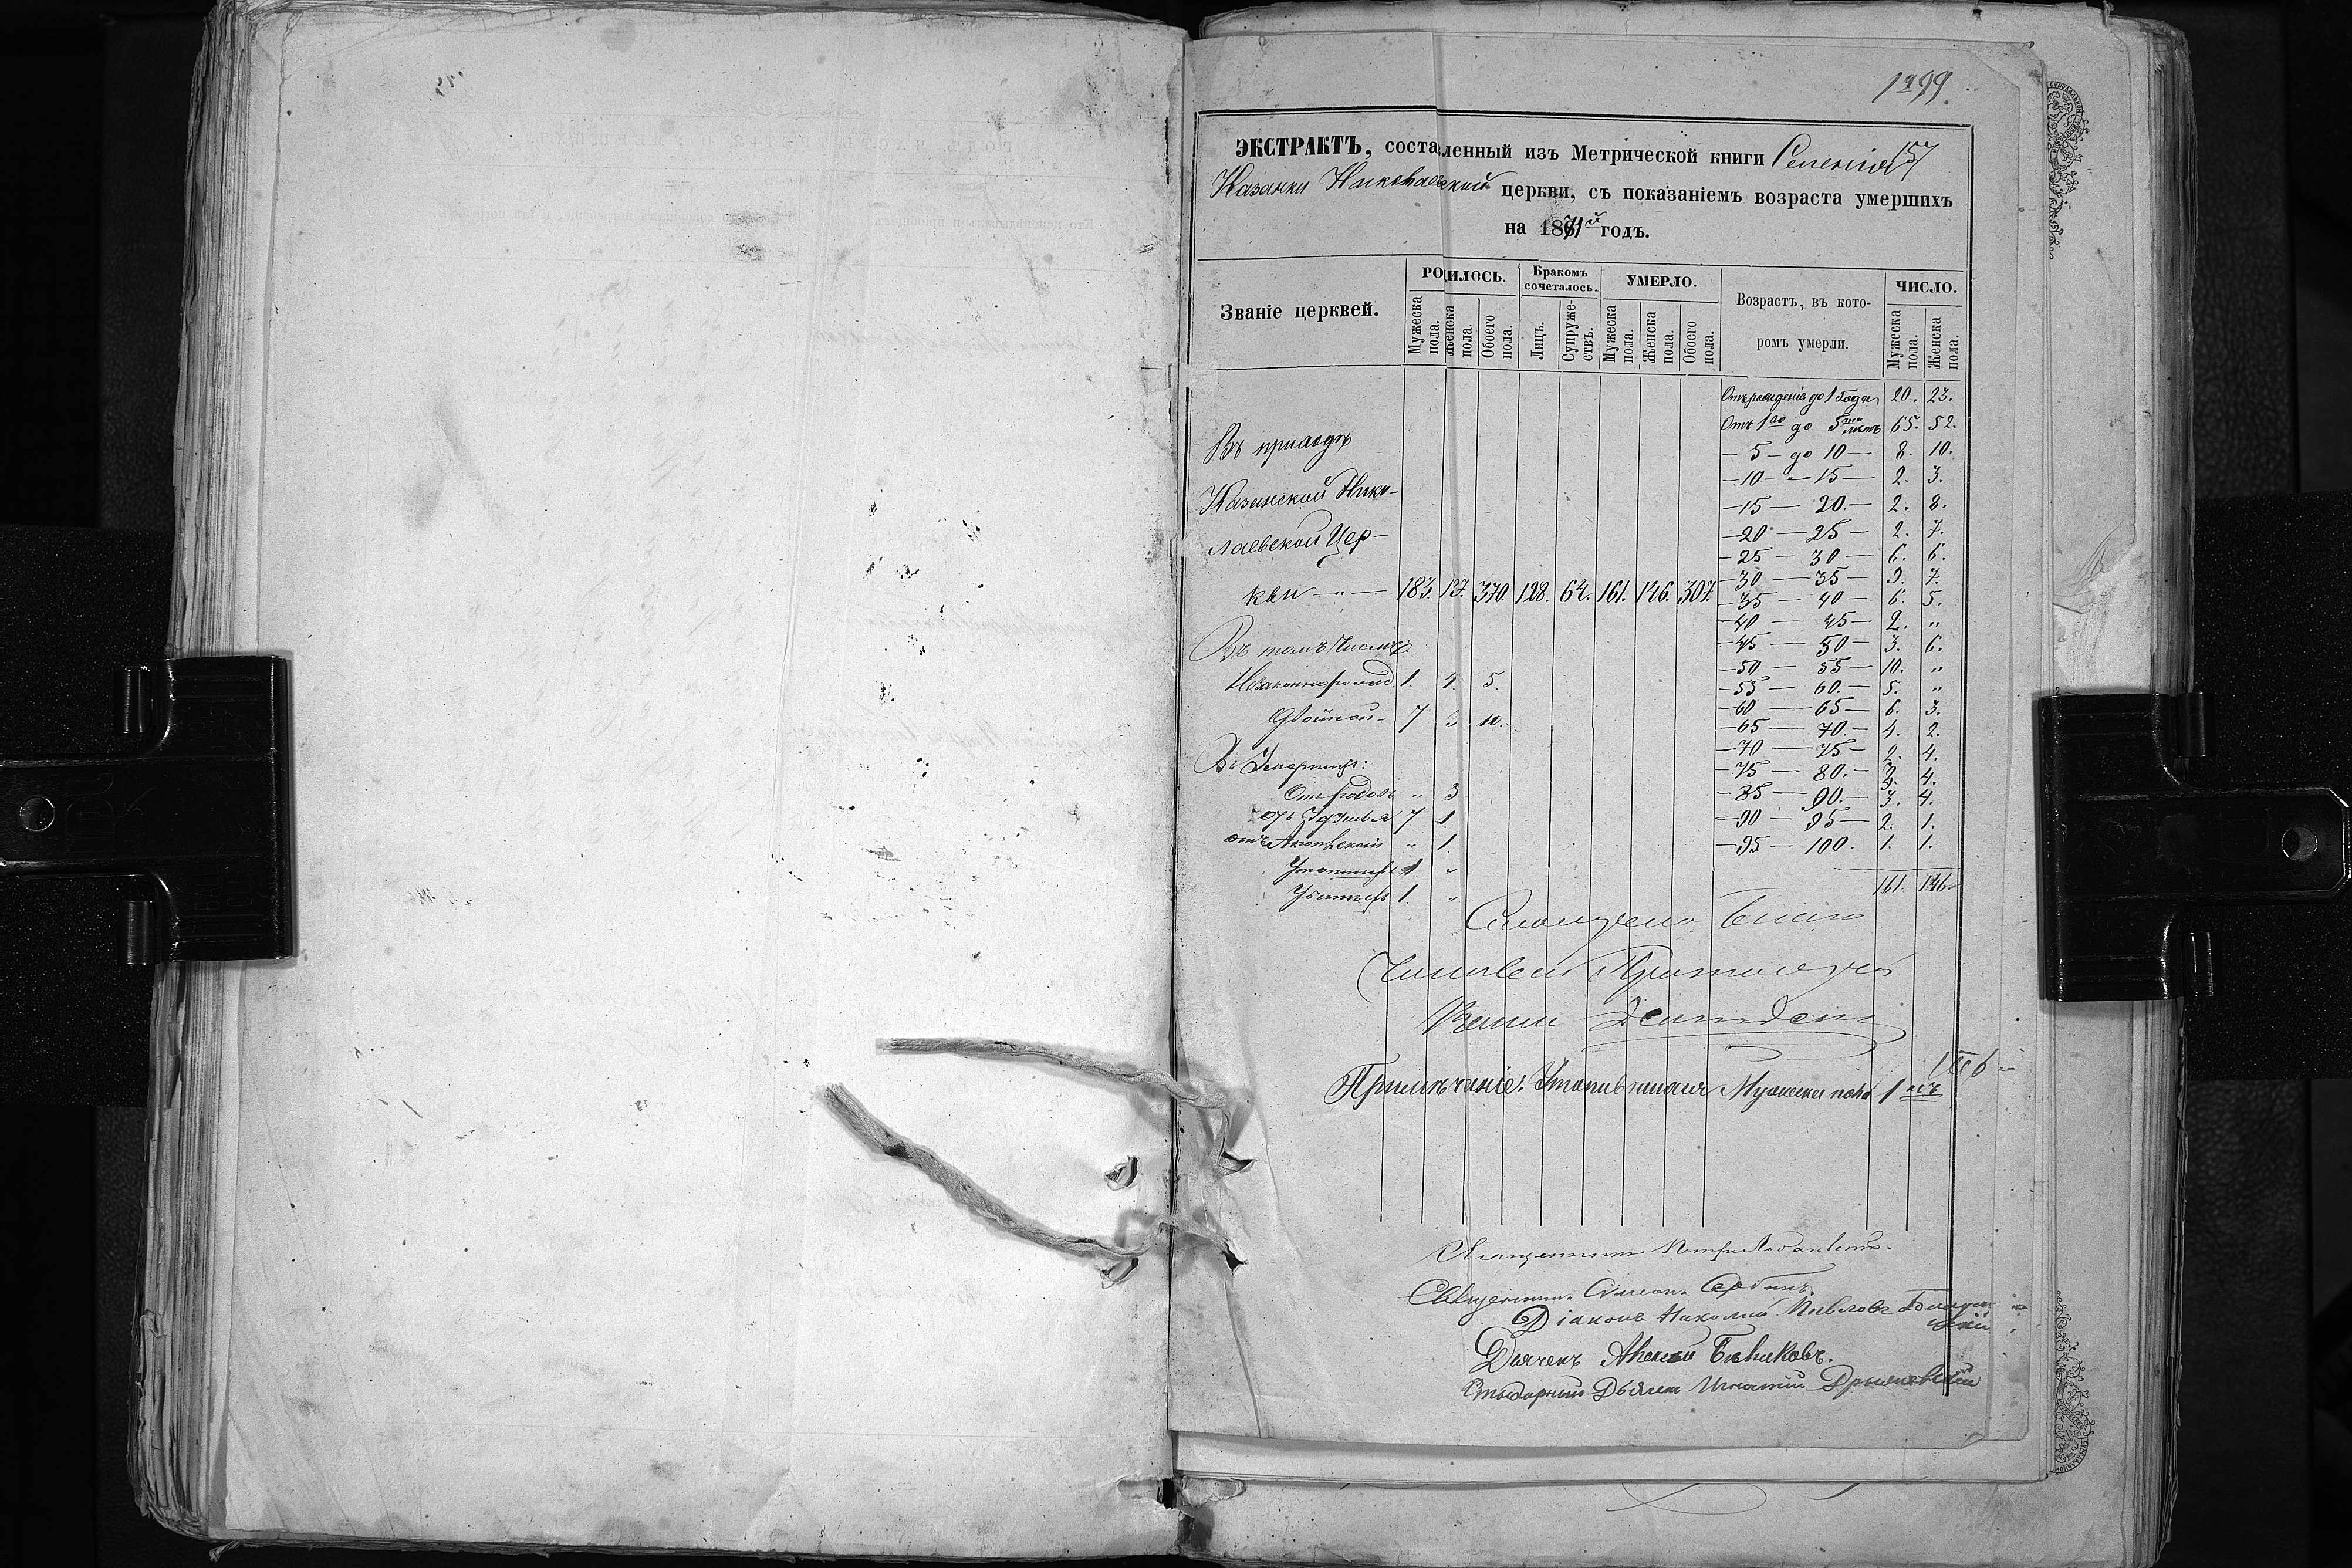 1799
ЭКСТРАКТЪ, составленный изъ Метрической книги Селенія 157
Казанки Николаевской церкви, съ показаніемъ возраста умершихъ
на 1871й годъ.
Званіе церквей.
РОДИЛОСЬ.
Мужеска пола.
Женска пола.
Обоего пола.
Бракомъ сочеталось.
Лицъ.
Супружествъ.
УМЕРЛО.
Мужеска пола.
Женска пола.
Обоего пола.
Возрастъ, въ которомъ умерли.
ЧИСЛО.
Мужеска пола.
Женска пола.
Отъ рожденія до 1 года 20. 23.
Отъ 1го до 5ти лѣтъ 65. 52.
Въ приходѣ
— 5 — до 10 — 8. 10.
— 10 — „ — 15 — 2. 3.
Казанской Нико-
— 15 — 20. — 2. 8.
лаевской Цер-
— 20 — 25 — 2. 7.
— 25 — 30 — 6. 6.
— 30 — 35 — 9. 7.
кви — „ — 183. 370. 128. 64. 161. 146. 307.
— 35 — 40 — 6. 5.
— 40 — 45 — 2. „
Въ томъ числѣ
— 45 — 50 — 3. 6.
— 50 — 55 — 10. „
Незаконнорожд. 1. 4. 5.
— 55 — 60. — 5. „
— 60 — 65 — 6. 3.
Двойней — 7 3 10.
— 65 — 70. — 4. 2.
— 70 — 75 — 2. 4.
Въ Умершихъ:
— 75 — 80. — 3. 4.
Отъ родовъ „ 3
— 85 — 90. — 3. 4.
7 1
— 90 — 95 — 2. 1.
„ 1
— 95 — 100. 1. 1.
1. „
161. 146.
1. „
Примѣчаніе: Утопившихся Мужеска пола 1
Священникъ Петръ
Священникъ Симеонъ Сербинъ.
Діаконъ Николай Павловъ
Дьячекъ Алексѣй Бѣликовъ.
Дьячекъ Игнатій